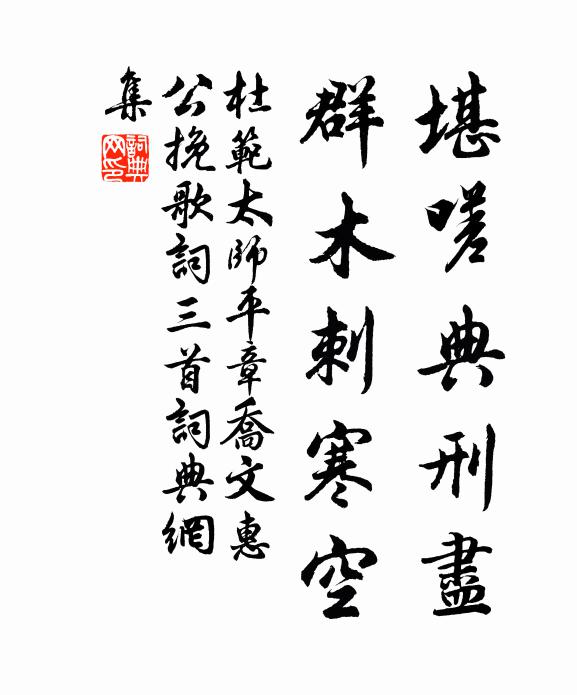 堪嗟典刑盡
群木刺寒空
杜範太師平章喬文惠
公挽歌詞三首詞典網
集
詞典
网印